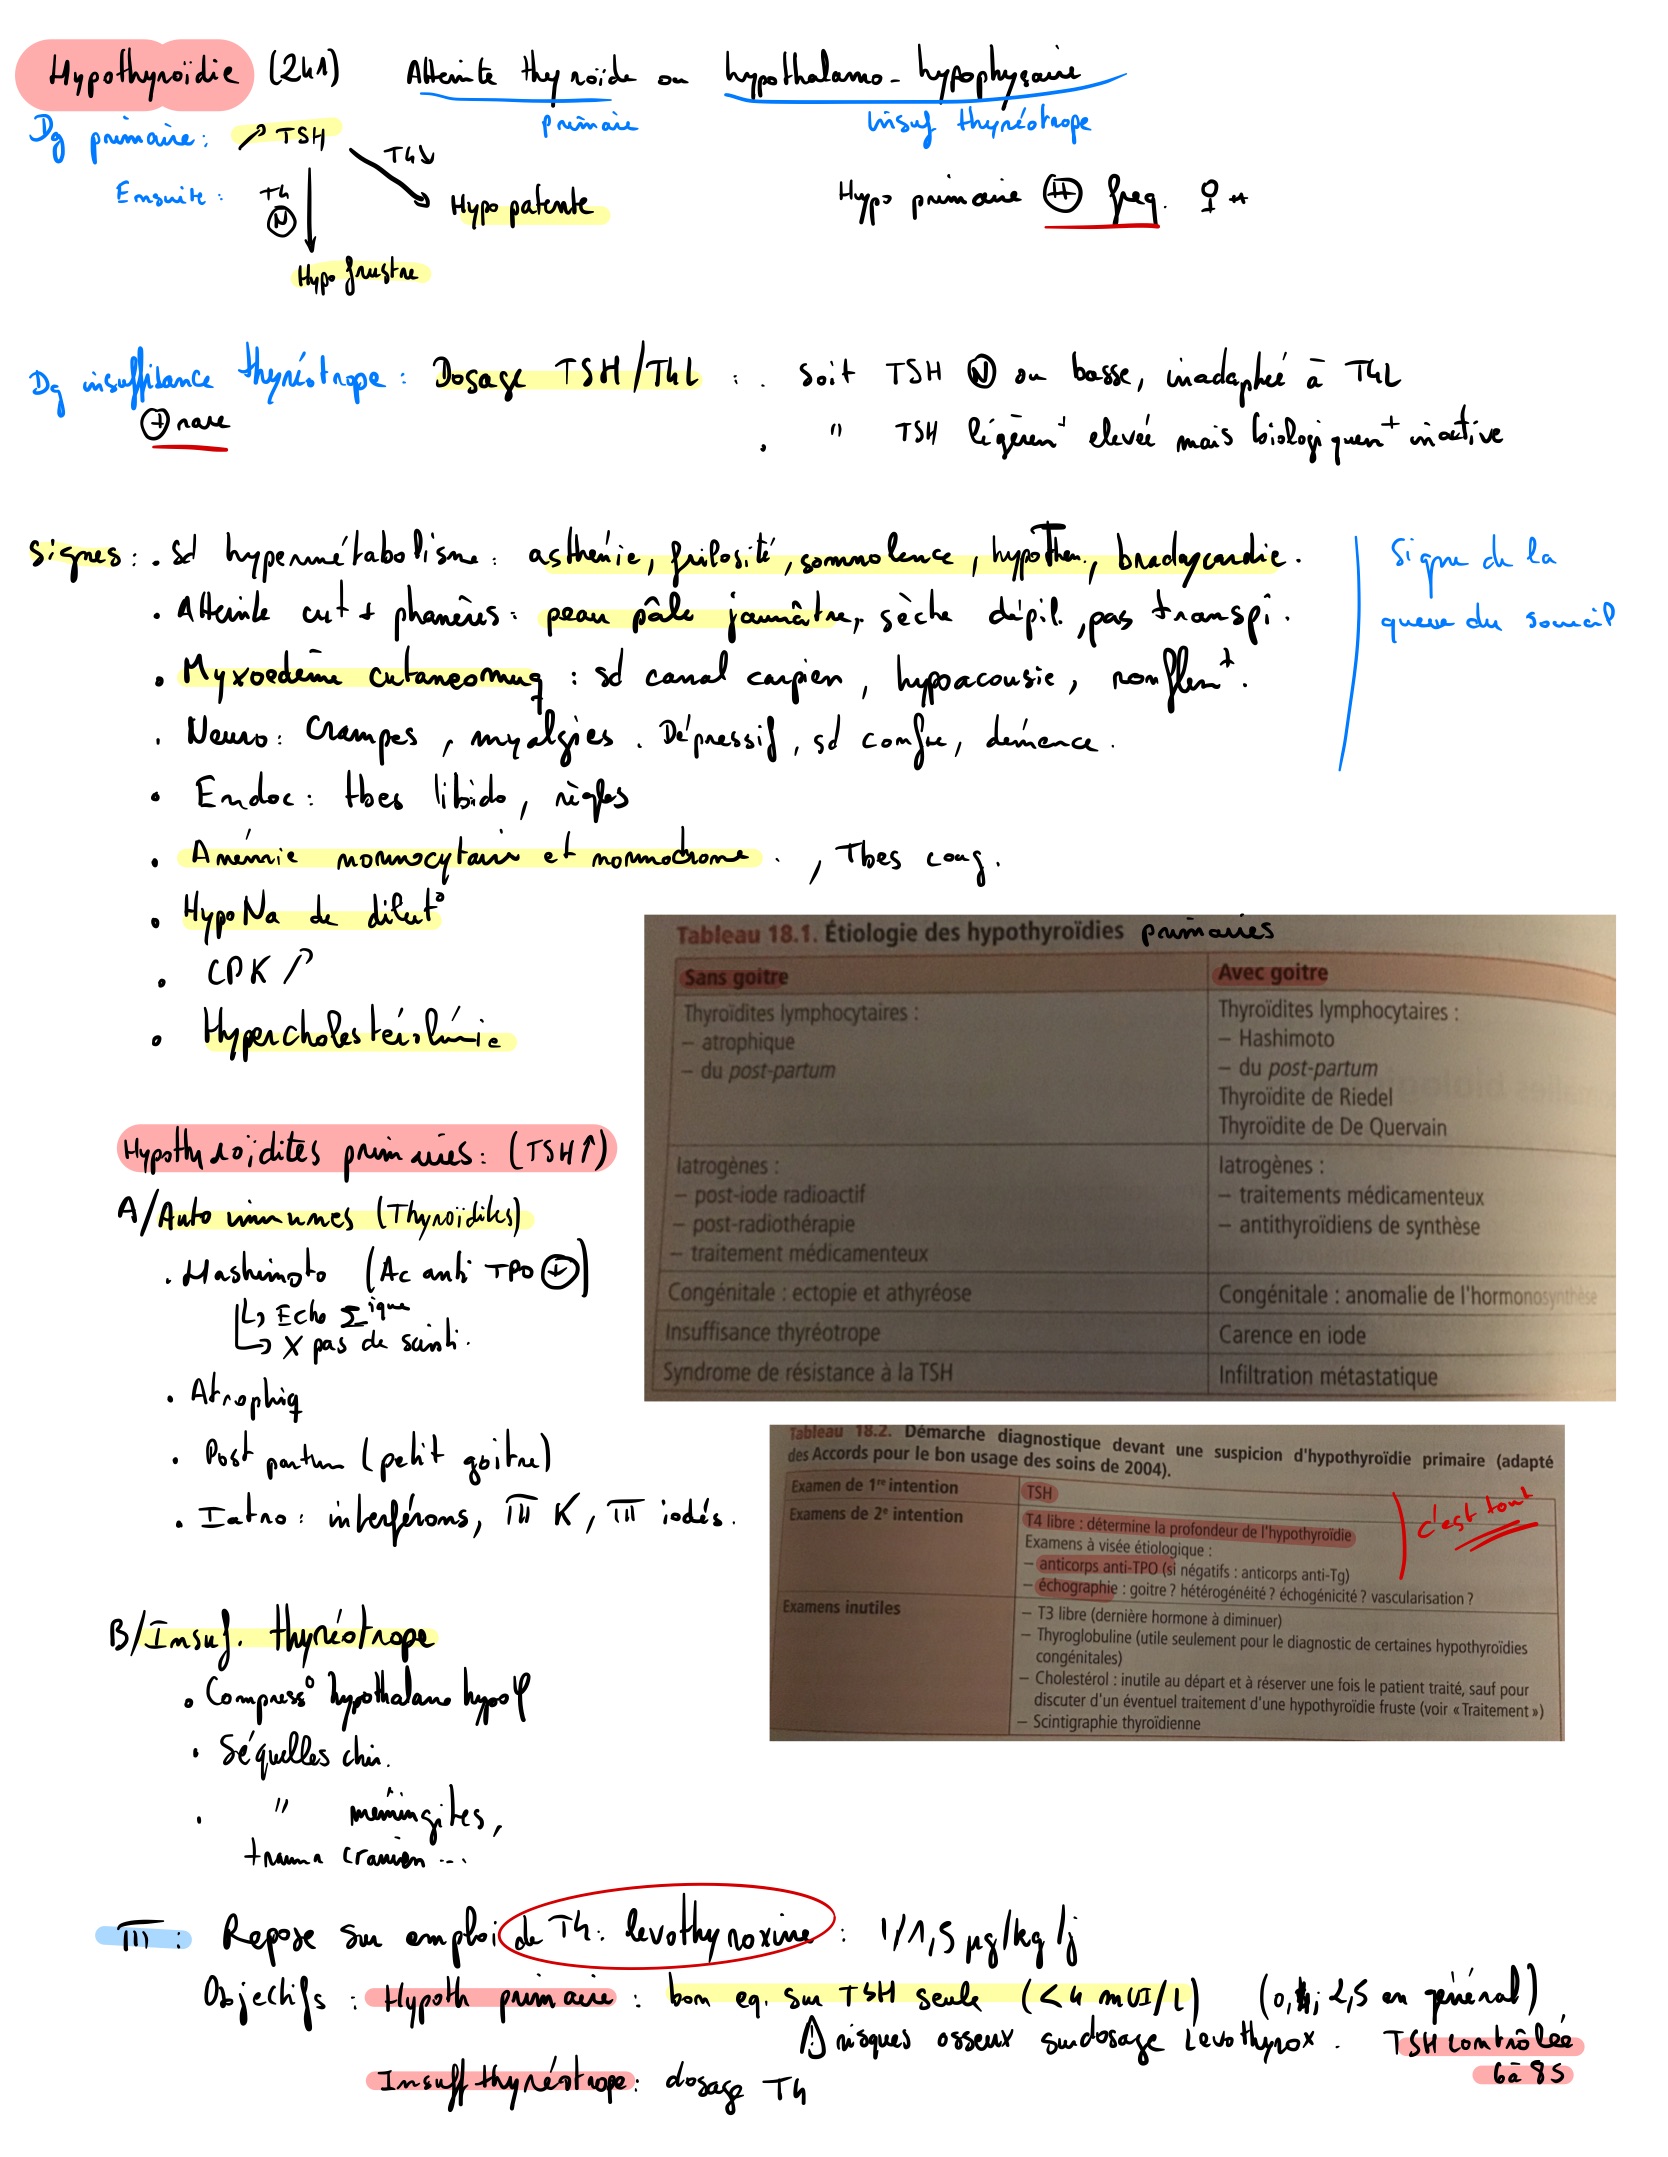 Hypothyroïdie (241) Atteinte thyroïde ou hypothalamo-hypophysaire
primaire Insuf thyréotrope
Dg primaire : ↗ TSH
T4↘
Ensuite : T4 Ⓝ Hypo patente
Hypo primaire ⊕ freq. ♀ ++
Hypo frustre
Dg insuffisance thyréotrope : Dosage TSH/T4L : . Soit TSH Ⓝ ou basse, inadaptée à T4L
⊕ rare
. " TSH légèrem^t élevée mais biologiquem^t inactive
Signes : . Sd hypermétabolisme : asthénie, frilosité, somnolence, hypoTherm, bradycardie.
Signe de la
queue du sourcil
. Atteinte cut + phanères : peau pâle jaunâtre, sèche dépil., pas transpi.
. Myxoedème cutanéomuq : sd canal carpien, hypoacousie, ronflem^t.
. Neuro : Crampes, myalgies. Dépressif, sd confu, démence.
. Endoc : tbes libido, règles
. Anémie normocytaire et normochrome. , Tbes coag.
. HypoNa de dilut°
. CPK ↗
. Hypercholestérolémie
Tableau 18.1. Étiologie des hypothyroïdies primaires
Sans goitre Avec goitre
Thyroïdites lymphocytaires : Thyroïdites lymphocytaires :
– atrophique – Hashimoto
– du post-partum – du post-partum
Thyroïdite de Riedel
Thyroïdite de De Quervain
Iatrogènes : Iatrogènes :
– post-iode radioactif – traitements médicamenteux
– post-radiothérapie – antithyroïdiens de synthèse
– traitement médicamenteux
Congénitale : ectopie et athyréose Congénitale : anomalie de l'hormonosynthèse
Insuffisance thyréotrope Carence en iode
Syndrome de résistance à la TSH Infiltration métastatique
Hypothyroïdites primaires : (TSH↑)
A/Auto immunes (Thyroïdites)
. Hashimoto (Ac anti TPO ⊕)
↳ Echo Σ^ique
↳ X pas de scinti.
. Atrophiq
. Post partum (petit goitre)
. Iatro : interférons, TTT K, TTT iodés.
Tableau 18.2. Démarche diagnostique devant une suspicion d'hypothyroïdie primaire (adapté
des Accords pour le bon usage des soins de 2004).
Examen de 1re intention TSH
Examens de 2e intention T4 libre : détermine la profondeur de l'hypothyroïdie
c'est tout
Examens à visée étiologique :
– anticorps anti-TPO (si négatifs : anticorps anti-Tg)
– échographie : goitre ? hétérogénéité ? échogénicité ? vascularisation ?
Examens inutiles – T3 libre (dernière hormone à diminuer)
– Thyroglobuline (utile seulement pour le diagnostic de certaines hypothyroïdies
congénitales)
– Cholestérol : inutile au départ et à réserver une fois le patient traité, sauf pour
discuter d'un éventuel traitement d'une hypothyroïdie fruste (voir « Traitement »)
– Scintigraphie thyroïdienne
B/Insuf. thyréotrope
. Compress° hypothalamo hypoφ
. Séquelles chir.
. " méningites,
trauma cranien ...
TTT : Repose sur emploi de T4 : levothyroxine : 1/1,5 µg/kg/j
Objectifs : Hypoth primaire : bon eq. sur TSH seule (<4 mUI/L) (0,4; 2,5 en général)
⚠ risques osseux surdosage Levothyrox. TSH contrôlée
6 à 8S
Insuff thyréotrope : dosage T4